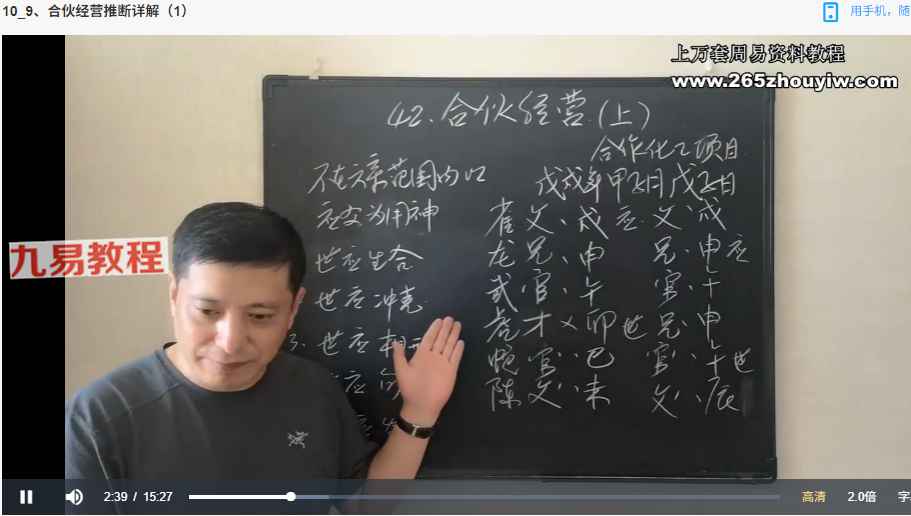 10_9、合伙经营推断详解（1）
用手机，随
上万套周易资料教程
www.265zhouyiw.com
42.合伙经营（上）
合作化工项目
戊戌年甲子月戊子日
不在六亲范围内以
应爻为用神
世应生合
世应冲克
世应相
应
九易教程
雀 父、戌 应 父、戌
龙 兄、申 兄、申 应
武 官、午 官、午
虎 才 × 卯 世 兄、申
官、巳 官、午 世
陈 父、未 父、辰
2:39 / 15:27
高清
2.0倍
字